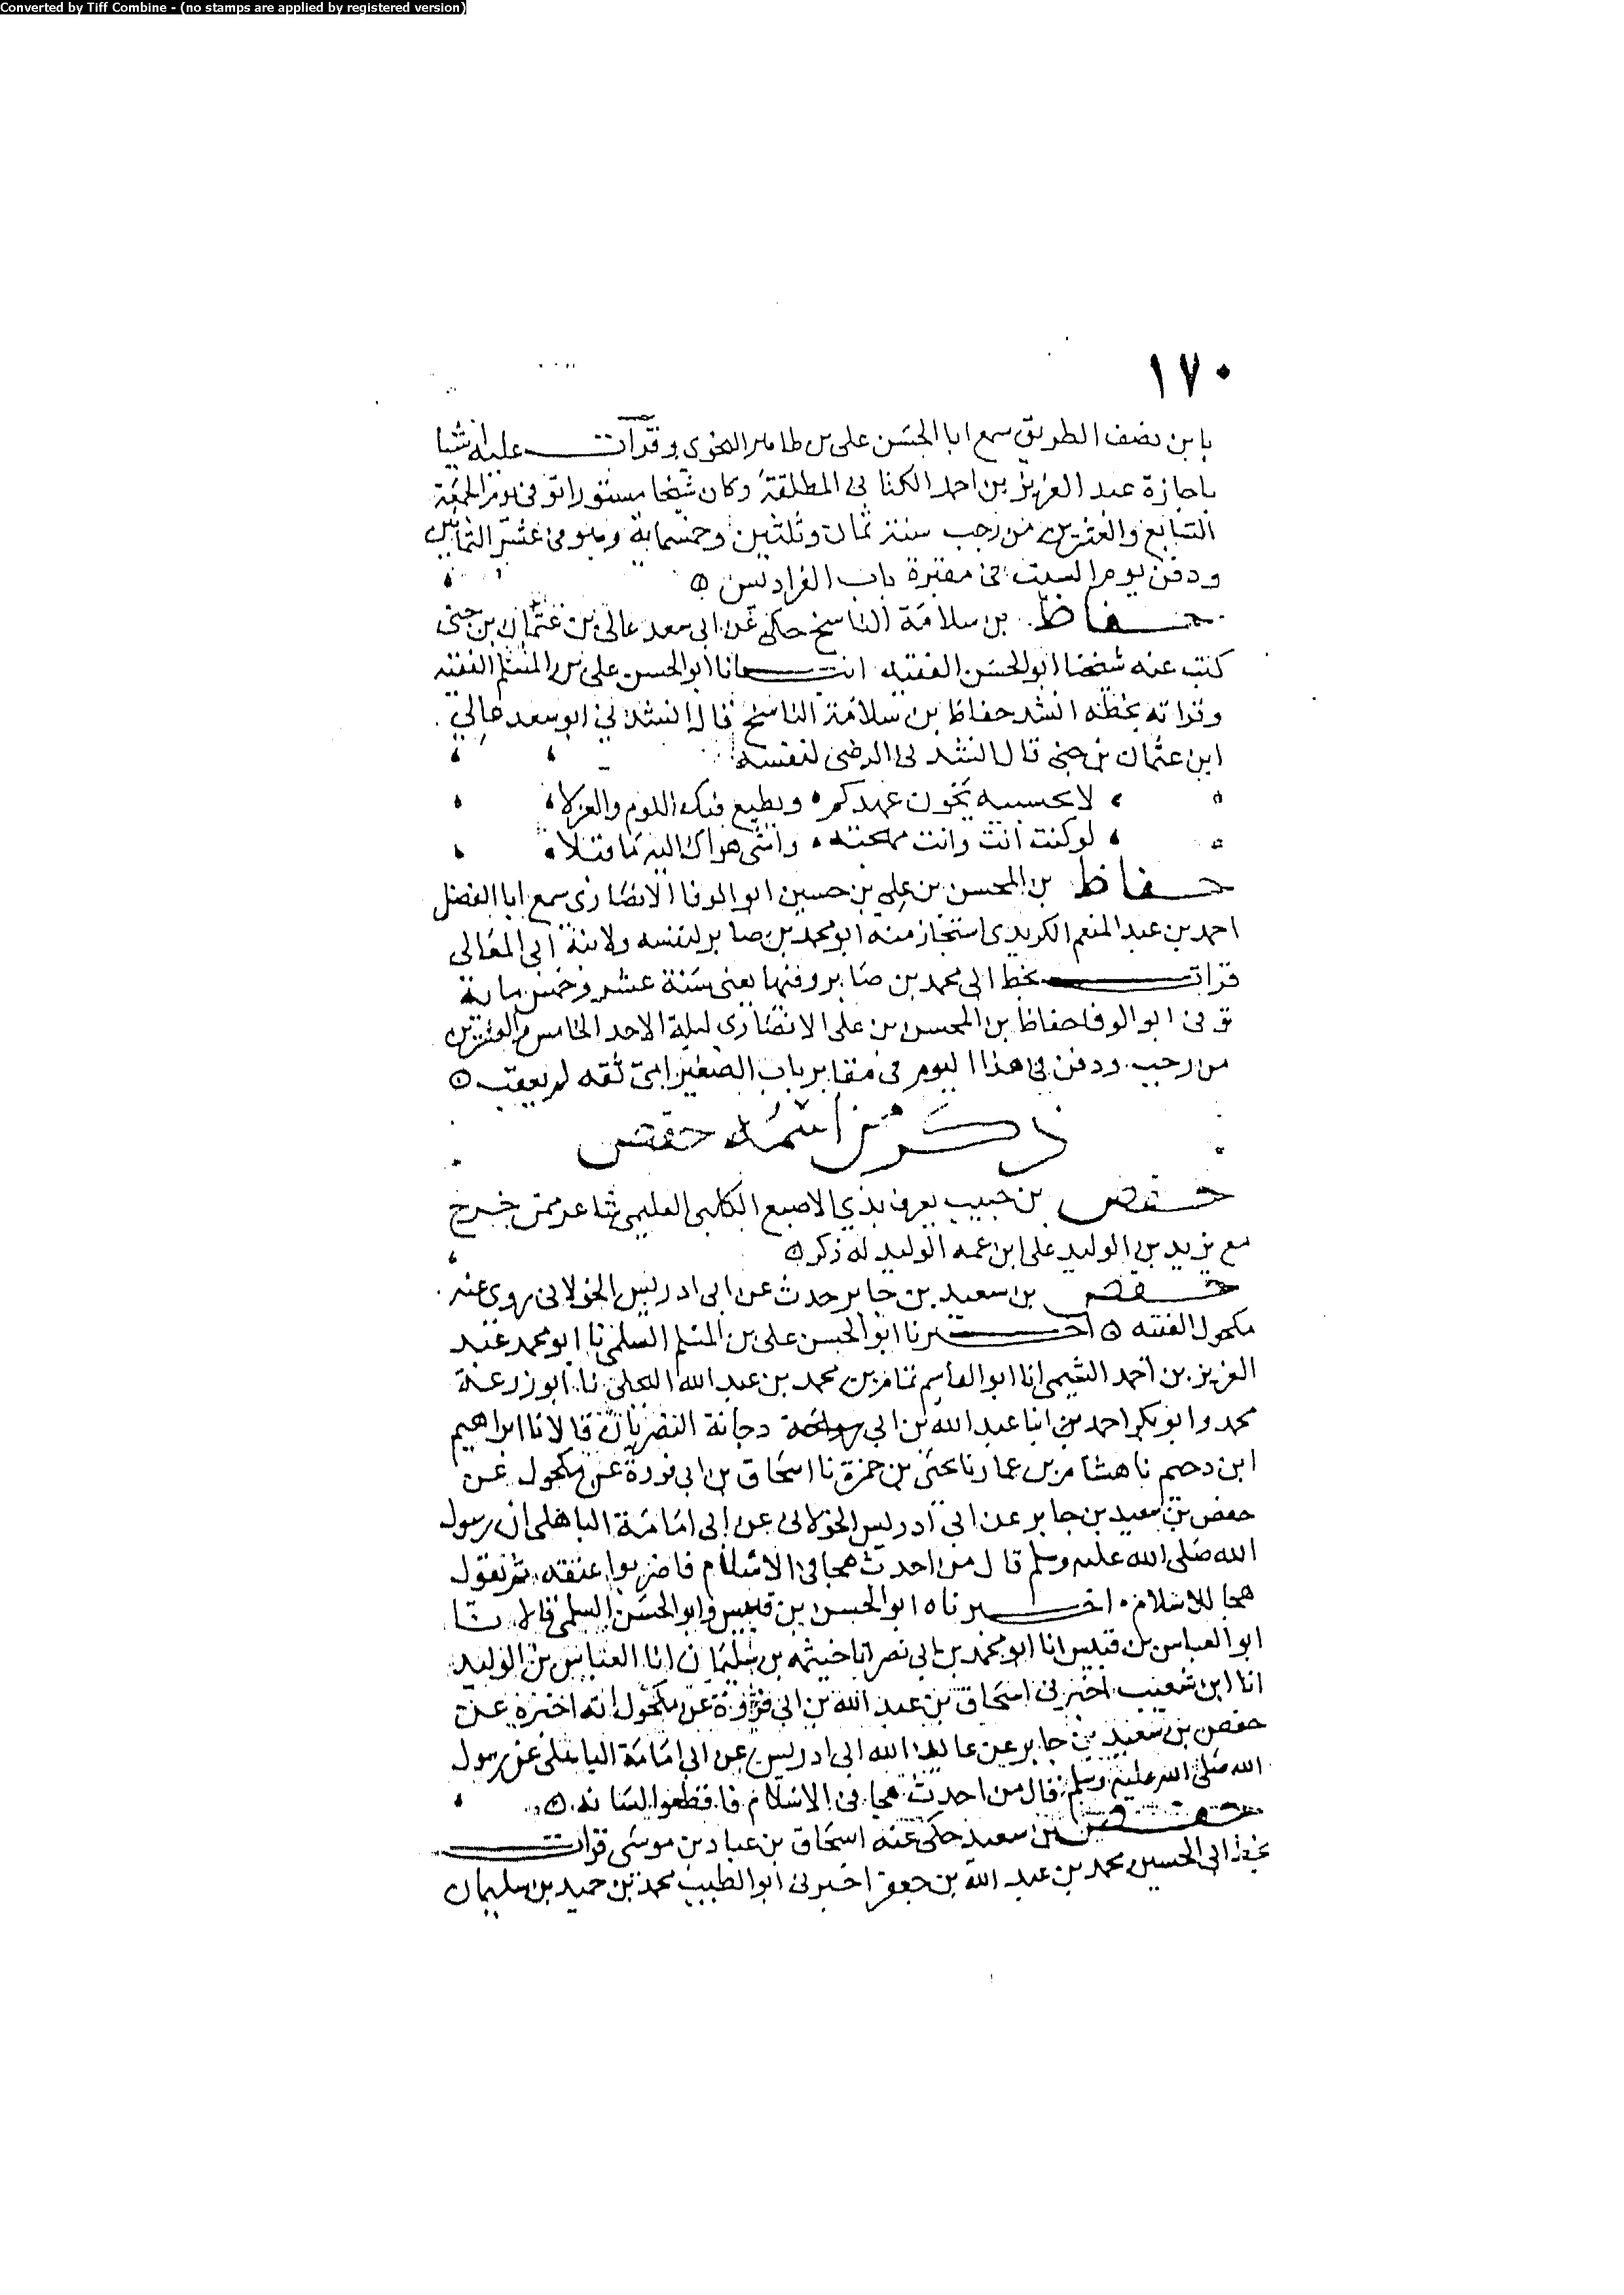 Converted by Tiff Combine - (no stamps are applied by registered version)
١٧٠
بابن نصف الطريق سمع ابا الحسن على بن طاهر النحوي وقرات عليه شيا
باجازة عبد العزيز بن احمد الكتاني المطلقة وكان شيخا مستورا توفى يوم الجمعة
السابع والعشرين من رجب سنة ثمان وثلثين وخمسماية
ودفن يوم السبت في مقبرة باب الفراديس ه
حفاظ بن سلامة الناسخ حكى عن ابى سعد عالى بن عثمان بن جنى
كتب عنه شيخنا ابو الحسن الفقيه انبانا ابو الحسن على بن المسلم الفقيه
وقراته بخطه انشد حفاظ بن سلامة الناسخ قال انشدني ابو سعد عالي
ابن عثمان بن جنى قال انشدنى الرضى لنفسه
لا تحسبيه يخون عهدكم ويطيع فيك اللوم والعذلا
لو كنت انت وانت مهجته واشى هواك اليه ما قبلا
حفاظ بن المحسن بن على بن حسين ابو الوفا الانصارى سمع ابا الفضل
احمد بن عبد المنعم الكريدى استجاز منه ابو محمد بن صابر لنفسه ولابنه ابى المعالى
قرات بخط ابى محمد بن صابر وفيها يعنى سنة عشر وخمس ماية
توفى ابو الوفا حفاظ بن المحسن بن على الانصارى ليلة الاحد الخامس والعشرين
من رجب ودفن في هذا اليوم فى مقابر باب الصغير ثقه لم يعقب ه
ذكر من اسمه حفص
حفص بن حبيب يعرف بذي الاصبع الكلبى العليمى شاعر ممن خرج
مع يزيد بن الوليد على ابن عمه الوليد له ذكر ه
حفص بن سعيد بن جابر حدث عن ابى ادريس الخولانى روى عنه
مكحول الفقيه ه اخبرنا ابو الحسن على بن المسلم السلمى نا ابو محمد عبد
العزيز بن احمد التميمى انا ابو القاسم تمام بن محمد بن عبد الله البجلى نا ابو زرعة
محمد وابو بكر احمد بن ابنا عبد الله بن ابي دجانة النصريان قالا نا ابراهيم
ابن دحيم نا هشام بن عمار نا يحيى بن حمزة نا اسحاق بن ابى فروة عن مكحول عن
حفص بن سعيد بن جابر عن ابى ادريس الخولانى عن ابى امامة الباهلى ان رسول
الله صلى الله عليه وسلم قال من احدث هجا فى الاسلام فاضربوا عنقه
هجا للاسلام اخبرناه ابو الحسن بن قبيس وابو الحسن السلمى قالا نا
ابو العباس بن قبيس انا ابو محمد بن ابى نصر انا خيثمه بن سليمان انا العباس بن الوليد
انا ابن شعيب اخبرنى اسحاق بن عبد الله بن ابى فروة عن مكحول انه اخبره عن
حفص بن سعيد بن جابر عن عايذ الله ابى ادريس عن ابى امامة الباهلى عن رسول
الله صلى الله عليه وسلم قال من احدث هجا فى الاسلام فاقطعوا لسانه ه
حفص بن سعيد حكى عنه اسحاق بن عباد بن موسى قرات
بخط ابى الحسين محمد بن عبد الله بن جعفر اخبرنى ابو الطيب محمد بن حميد بن سليمان